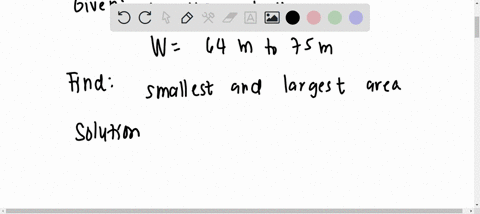 Given:
W = 64 m to 75 m
Find: smallest and largest area
Solution